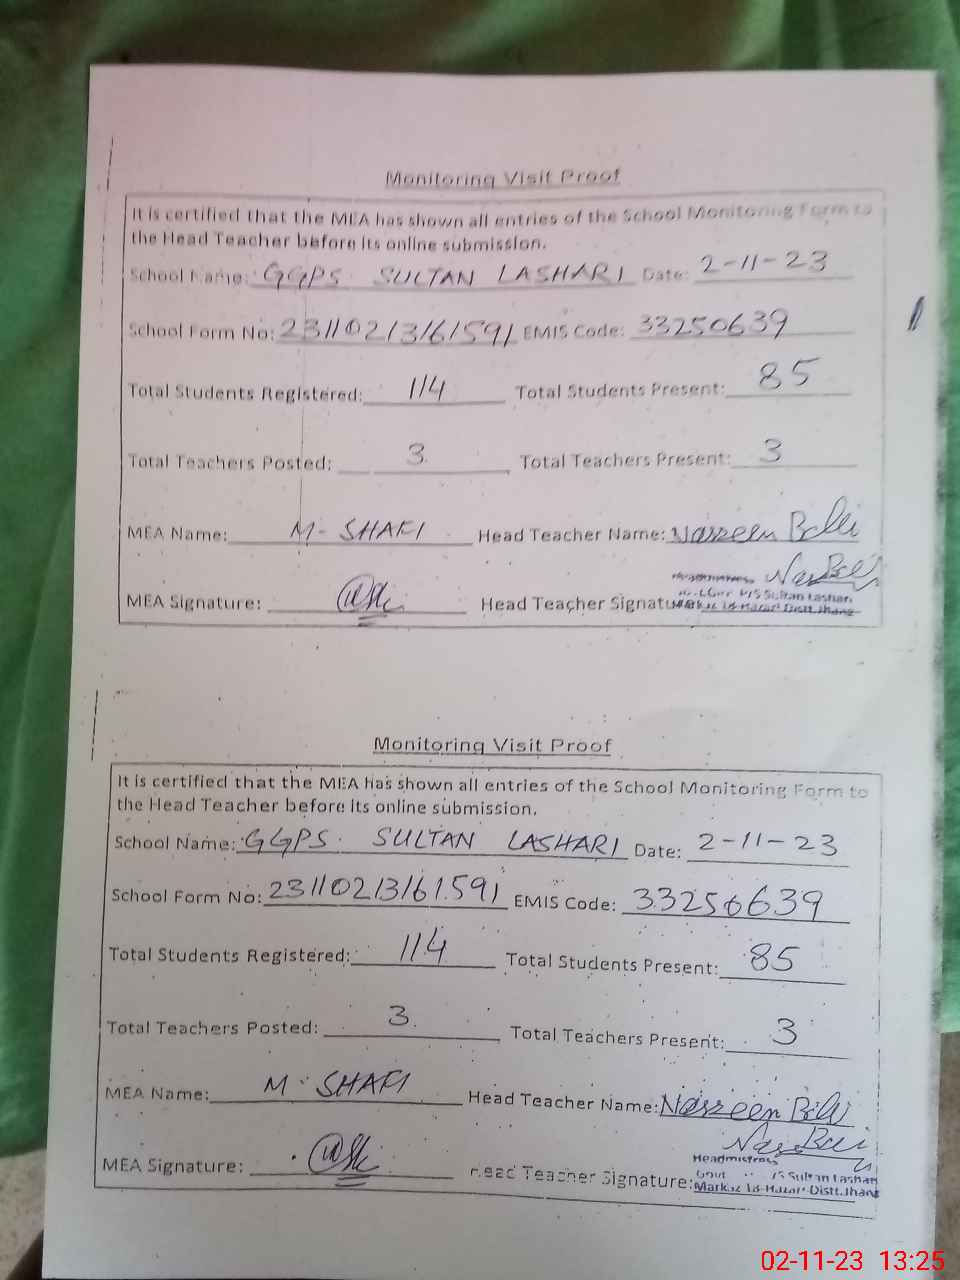 Monitoring Visit Proof
It is certified that the MEA has shown all entries of the School Monitoring Form to
the Head Teacher before its online submission.
School Name: GGPS SULTAN LASHARI Date: 2-11-23
School Form No: 23110213161591 EMIS Code: 33250639
Total Students Registered: 114 Total Students Present: 85
Total Teachers Posted: 3 Total Teachers Present: 3
MEA Name: M. SHAFI Head Teacher Name: Nasreen Bibi
Headmistress
Sultan Lashari
MEA Signature: Head Teacher Signature
Distt. Jhang
Monitoring Visit Proof
It is certified that the MEA has shown all entries of the School Monitoring Form to
the Head Teacher before its online submission.
School Name: GGPS. SULTAN LASHARI Date: 2-11-23
School Form No: 23110213161591 EMIS Code: 33250639
Total Students Registered: 114 Total Students Present: 85
Total Teachers Posted: 3 Total Teachers Present: 3
MEA Name: M. SHAFI Head Teacher Name: Nasreen Bibi
Headmistress
Govt P/S Sultan Lashari
MEA Signature: Head Teacher Signature: Markaz 18-Hazari Distt. Jhang
02-11-23 13:25